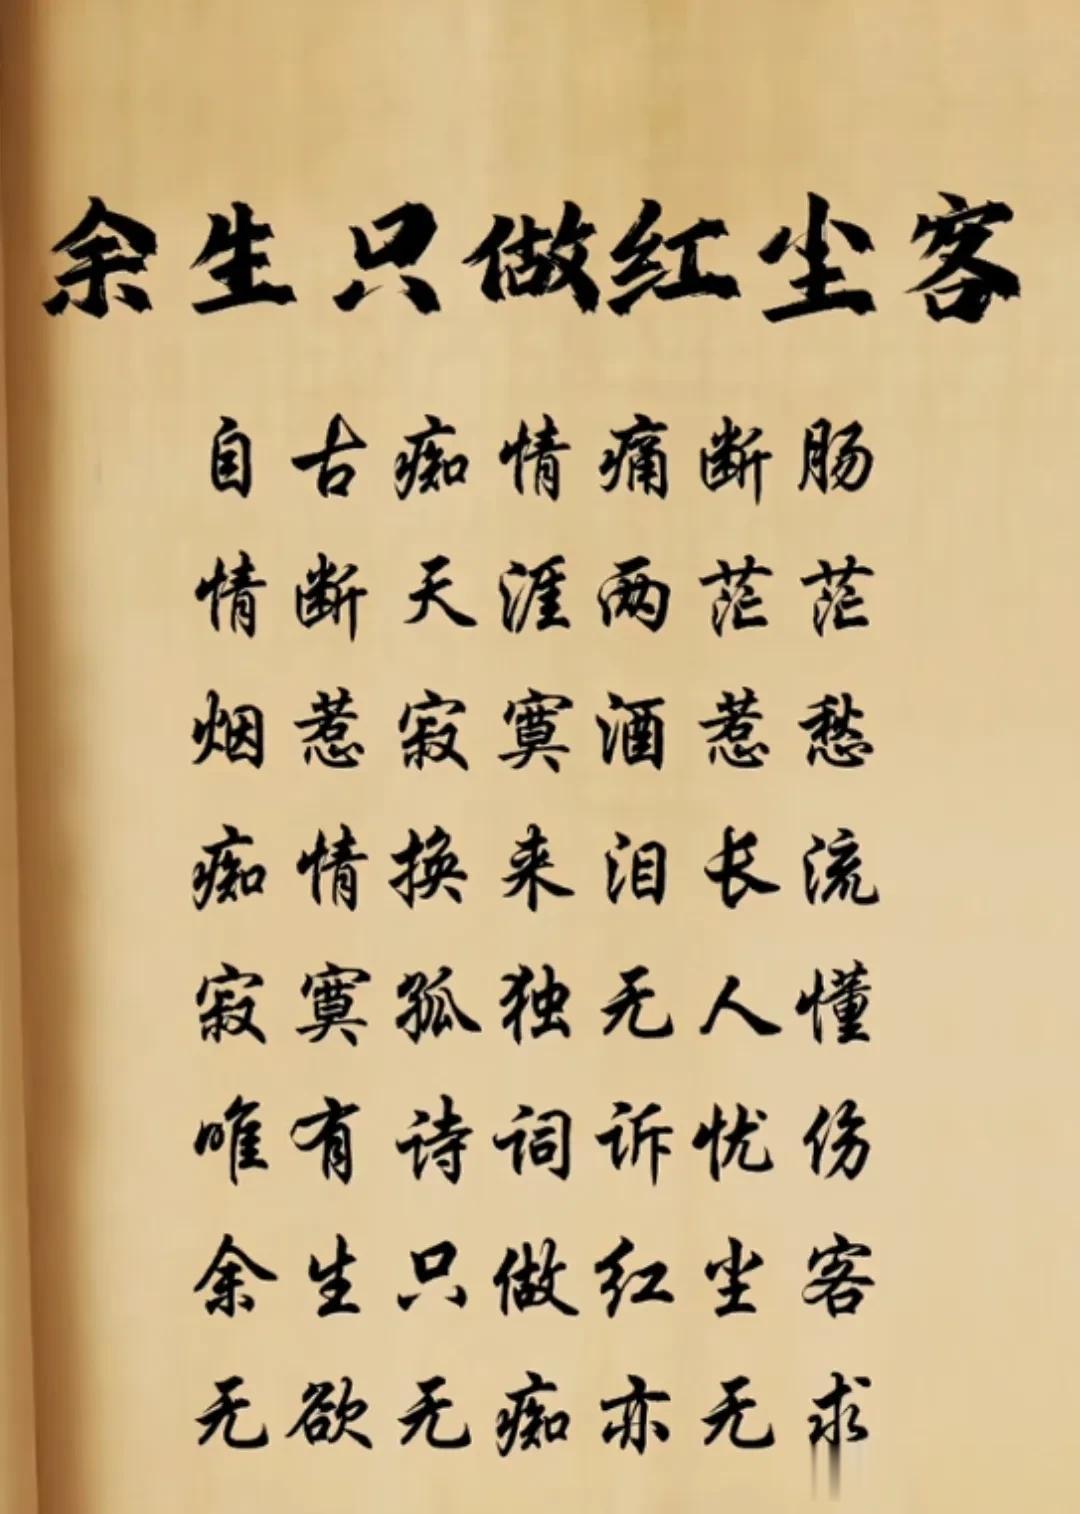 余生只做红尘客
自古痴情痛断肠
情断天涯两茫茫
烟惹寂寞酒惹愁
痴情换来泪长流
寂寞孤独无人懂
唯有诗词诉忧伤
余生只做红尘客
无欲无痴亦无求